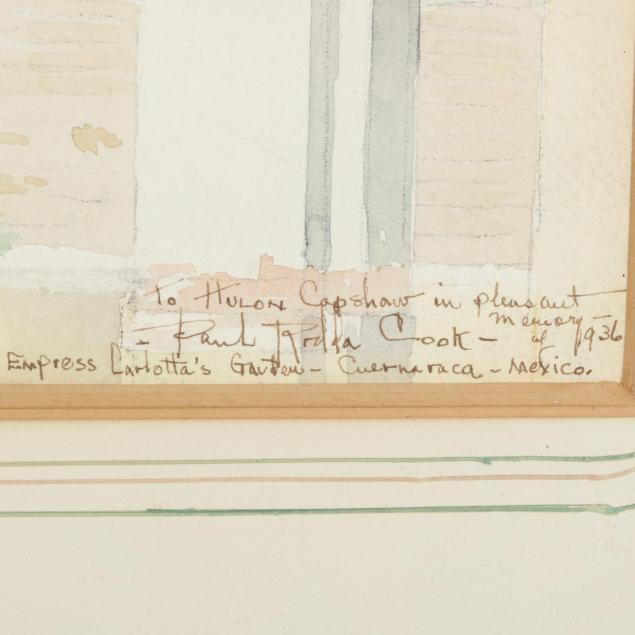 To Hulon Capshaw in pleasant
memory of 1936
- Paul Rodda Cook -
Empress Carlotta's Garden - Cuernavaca - Mexico.